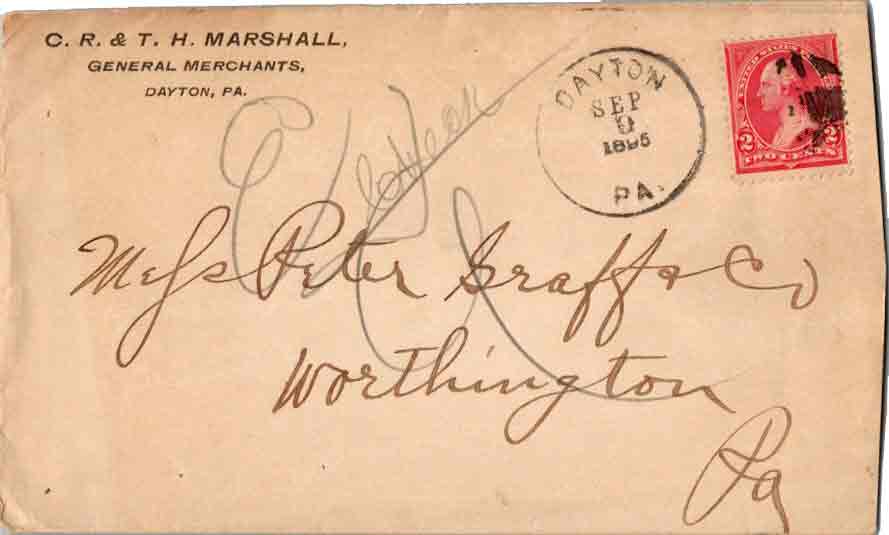 C. R. & T. H. MARSHALL,
GENERAL MERCHANTS,
DAYTON, PA.
DAYTON
SEP
9
1895
PA.
UNITED STATES
2 2
TWO CENTS
Mess Peter Graff & Co
Worthington
Pa